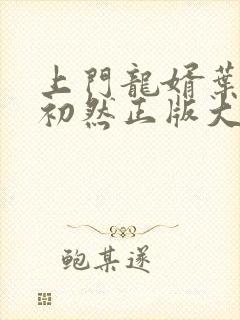 上門龍婿葉
初然正版大
鲍某遂